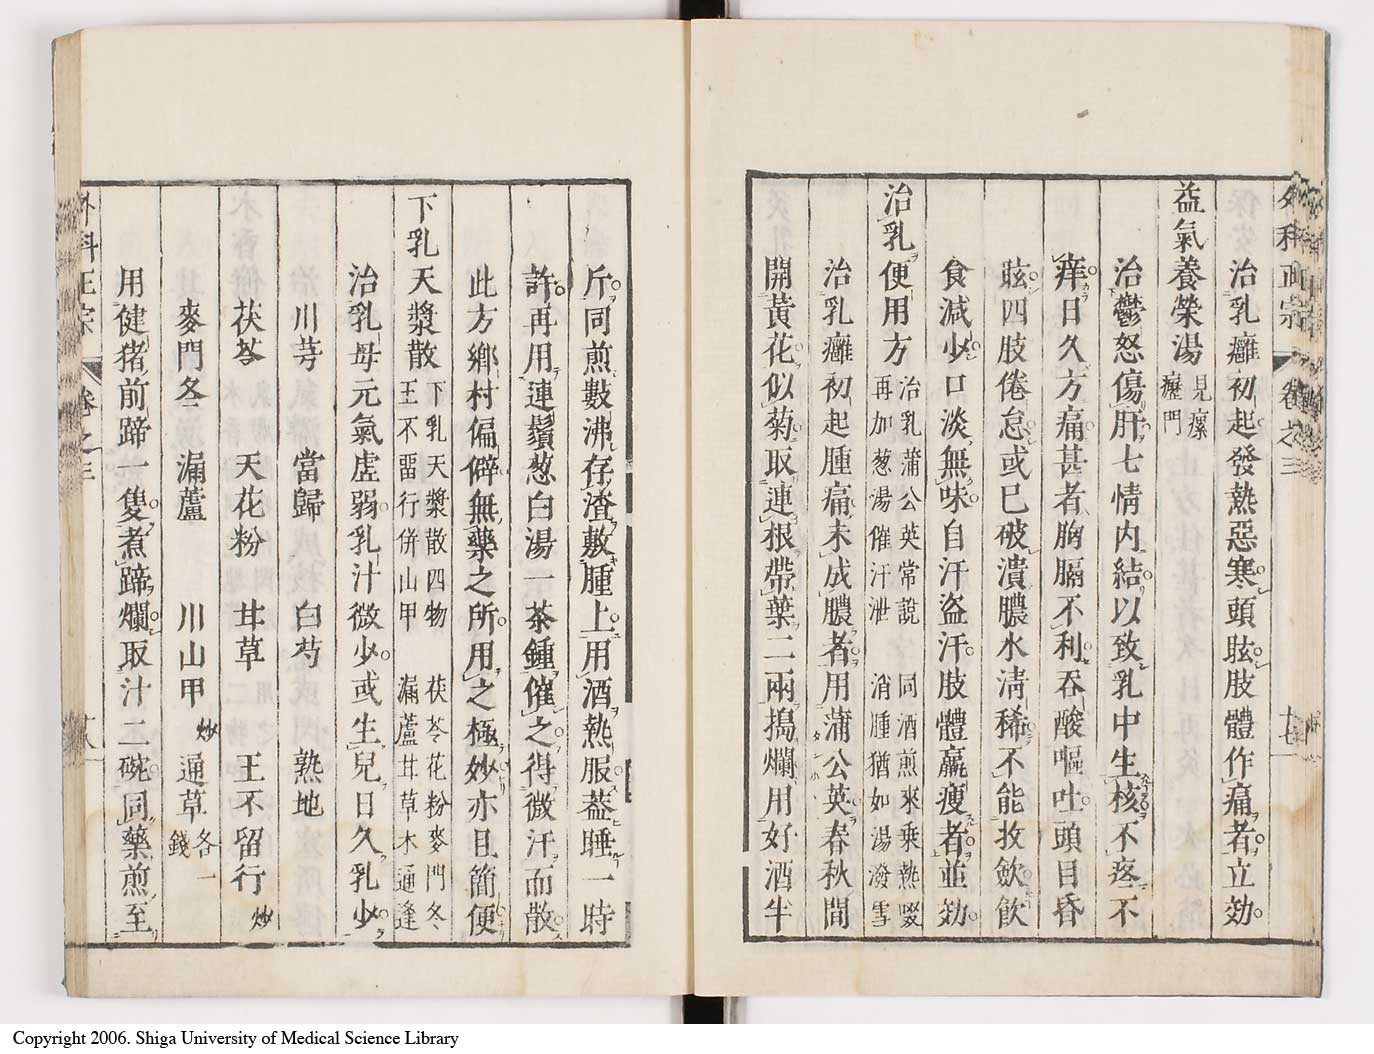 外科正宗 卷之三 十七
治乳癰初起發熱惡寒頭眩肢體作痛者立効
益氣養榮湯 見瘰癧門
治鬱怒傷肝七情内結以致乳中生核不疼不
痒日久方痛甚者胸膈不利吞酸嘔吐頭目昏
眩四肢倦怠或已破潰膿水淸稀不能收歛飲
食減少口淡無味自汗盜汗肢體羸瘦者並効
治乳便用方 治乳蒲公英常說 同酒煎來乘熱啜
再加葱湯催汗泄 消腫猶如湯潑雪
治乳癰初起腫痛未成膿者用蒲公英春秋間
開黃花似菊取連根帶葉二兩搗爛用好酒半
斤同煎數沸存渣敷腫上用酒熱服葢睡一時
許再用連鬚葱白湯一茶鍾催之得微汗而散
此方鄉村偏僻無藥之所用之極妙亦且簡便
下乳天漿散 下乳天漿散四物 茯苓花粉麥門冬
王不畱行併山甲 漏蘆甘草木通逢
治乳母元氣虛弱乳汁微少或生兒日久乳少
川芎 當歸 白芍 熟地
茯苓 天花粉 甘草 王不留行 炒
麥門冬 漏蘆 川山甲 炒 通草 各一錢
用健猪前蹄一隻煮蹄爛取汁二碗同藥煎至
外科正宗 卷之三 十八
Copyright 2006. Shiga University of Medical Science Library